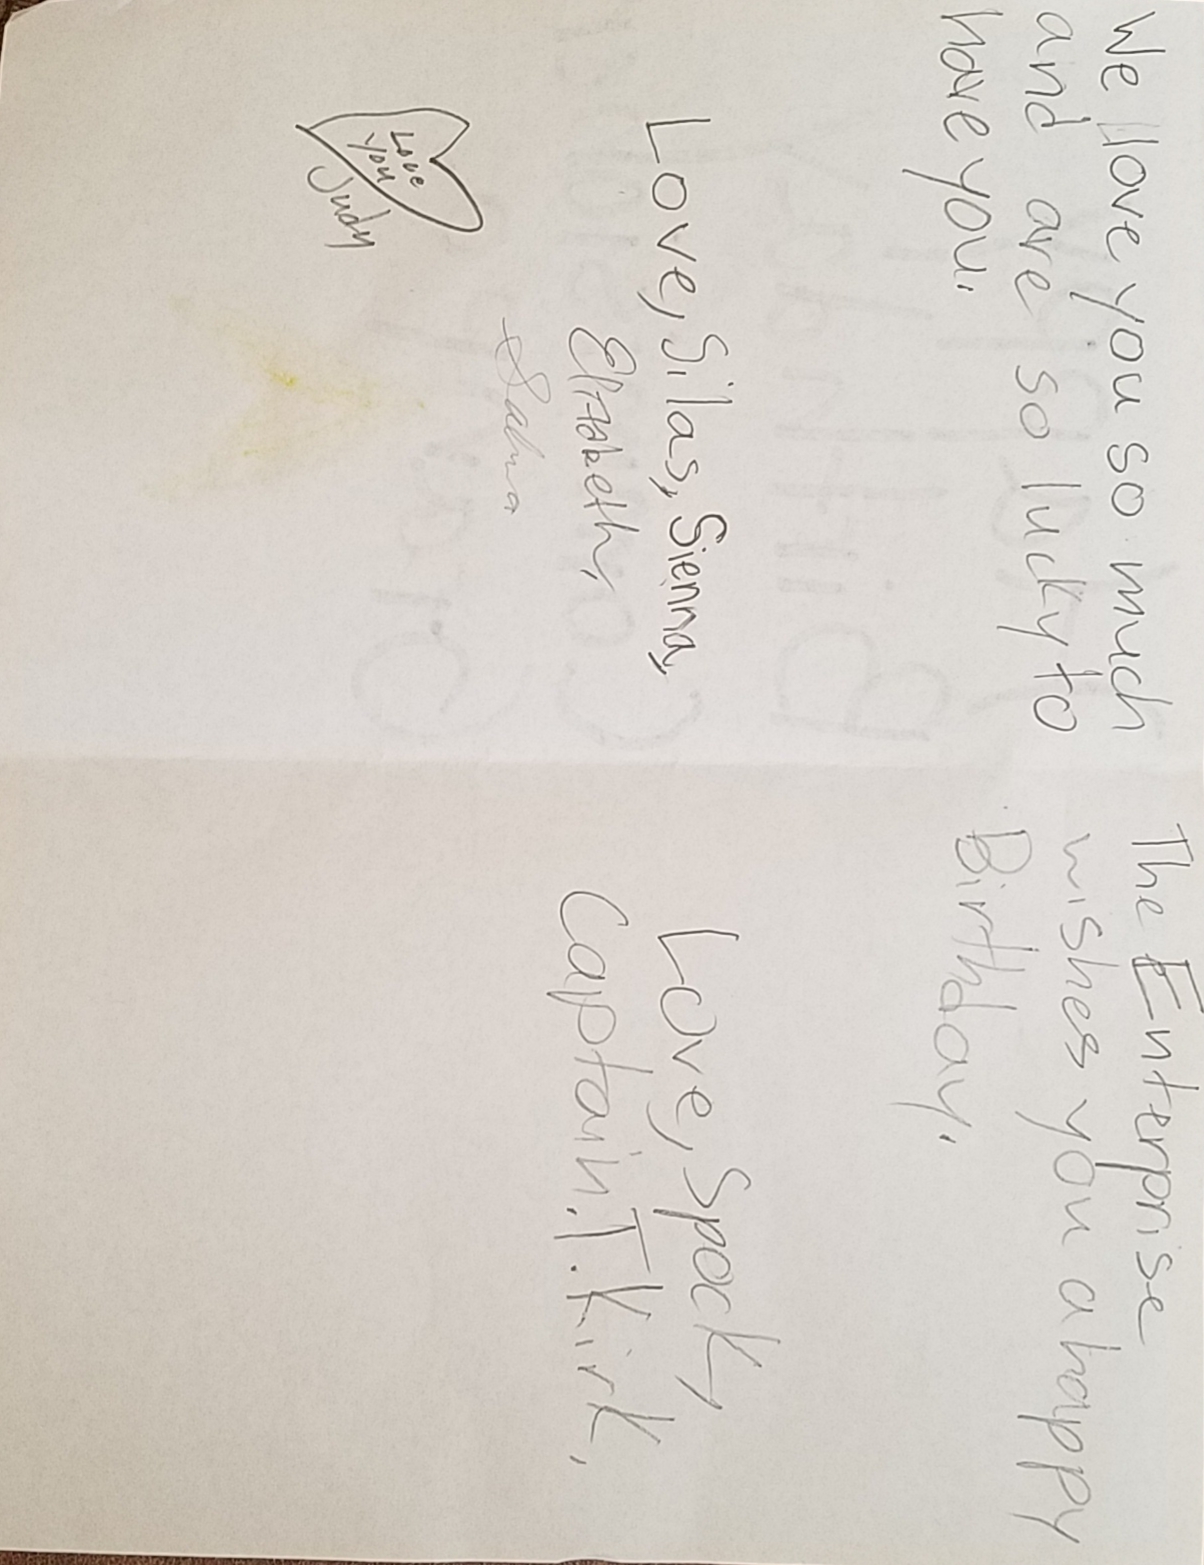 We love you so much
and are so lucky to
have you.
Love, Silas, Sienna,
Elizabeth,
Love
you
Judy
The Enterprise
wishes you a happy
Birthday.
Love, Spock,
Captain.T.Kirk,